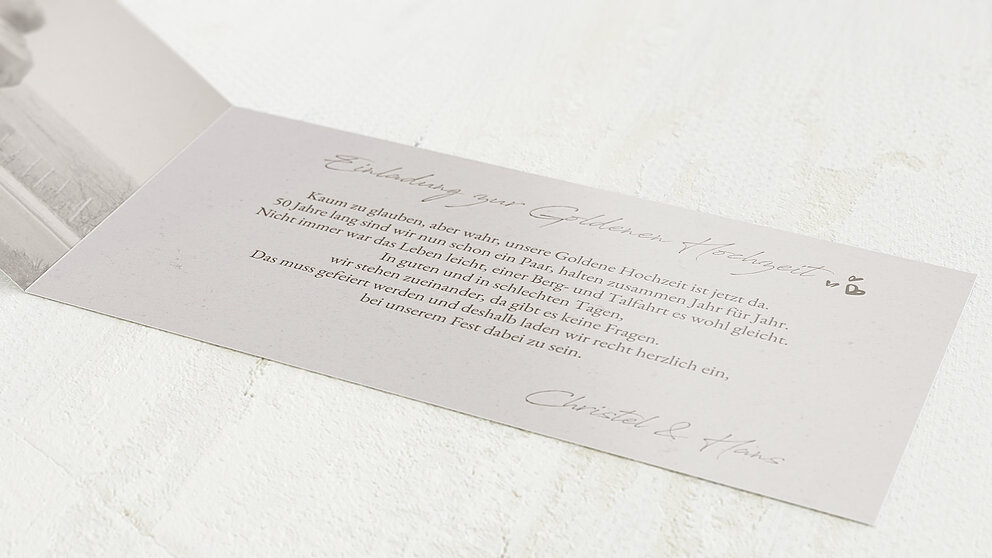 Einladung zur Goldenen Hochzeit
Kaum zu glauben, aber wahr, unsere Goldene Hochzeit ist jetzt da.
50 Jahre lang sind wir nun schon ein Paar, halten zusammen Jahr für Jahr.
Nicht immer war das Leben leicht, einer Berg- und Talfahrt es wohl gleicht.
In guten und in schlechten Tagen,
wir stehen zueinander, da gibt es keine Fragen.
Das muss gefeiert werden und deshalb laden wir recht herzlich ein,
bei unserem Fest dabei zu sein.
Christel & Hans